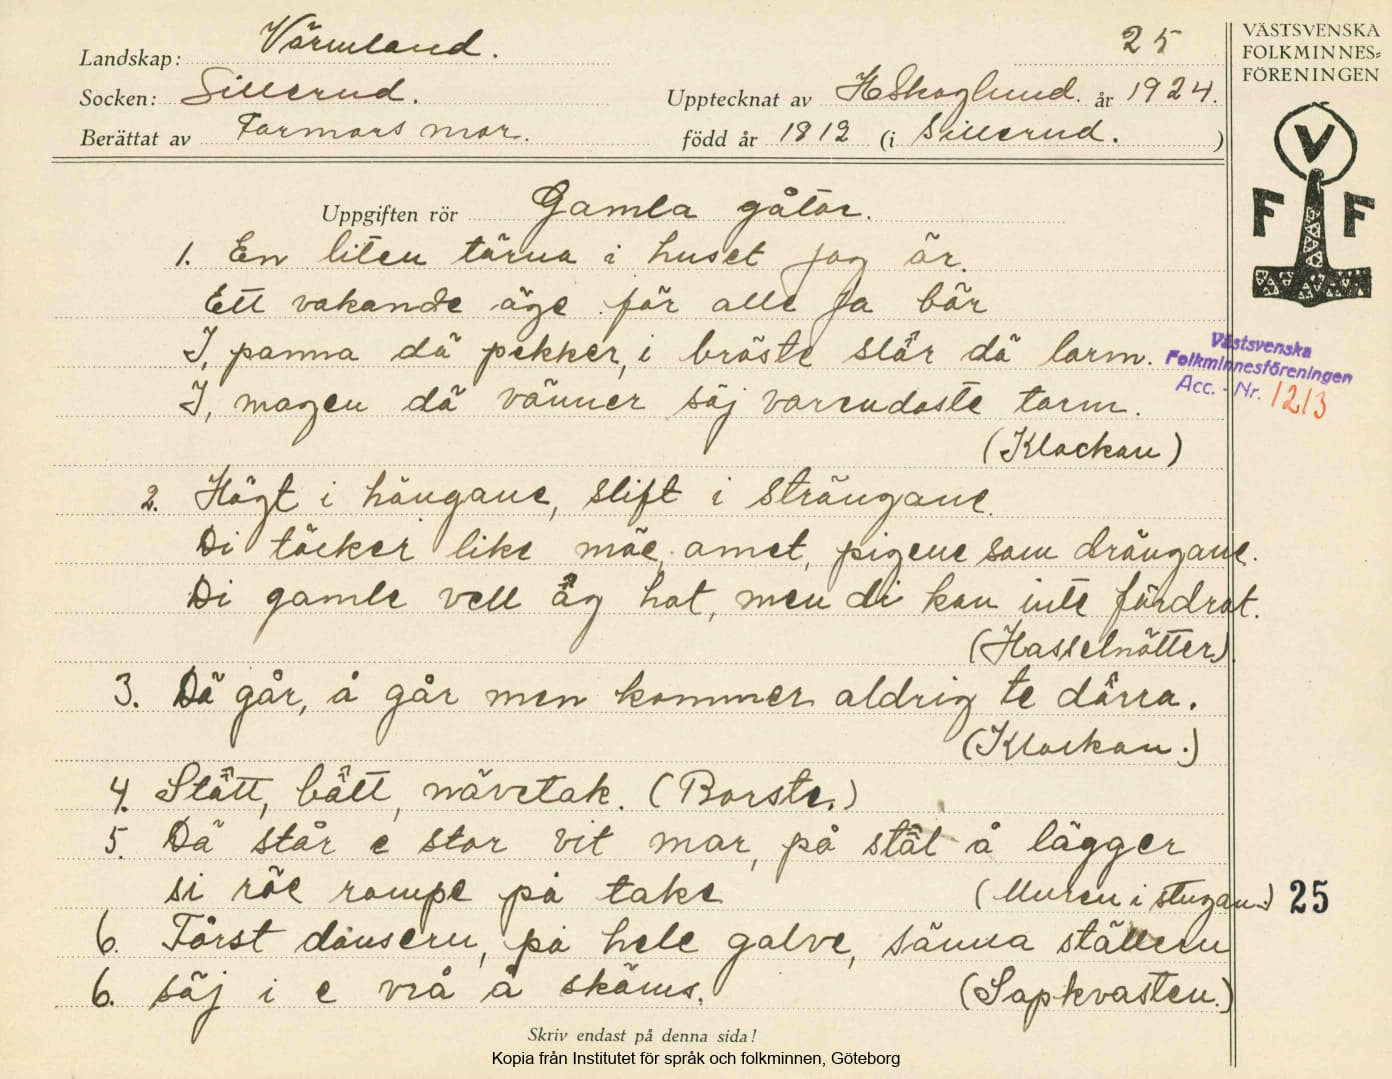 Landskap: Värmland. 25
Socken: Sillerud. Upptecknat av HSkoglund. år 1924.
Berättat av Farmors mor. född år 1812 (i Sillerud. )
VÄSTSVENSKA
FOLKMINNES=
FÖRENINGEN
V
F F
Uppgiften rör Gamla gåtor.
1. En liten tärna i huset jag är.
Ett vakande öge för alle ja bär
I, panna dä pekker, i bröste slår dä larm.
I, magen dä vänner säj varendaste tarm.
(Klockan)
Västsvenska
Folkminnesföreningen
Acc. - Nr. 1213
2. Högt i hängane, slift i strängane.
Di täcker like möe amet, pigene som drängane.
Di gamle vell åg hat, men di kan inte fördrat.
(Hasselnötter).
3. Dä går, å går men kommer aldrig te dårra.
(Klockan.)
4. Stått, bått, nävetak. (Borste.)
5. Dä står e stor vit mar, på ståt å lägger
si röe rompe på take (Muren i stugan.) 25
6. Först dansern, på hele galve, sänna ställern
6. säj i e vrå å skäms. (Sapkvasten.)
Skriv endast på denna sida!
Kopia från Institutet för språk och folkminnen, Göteborg